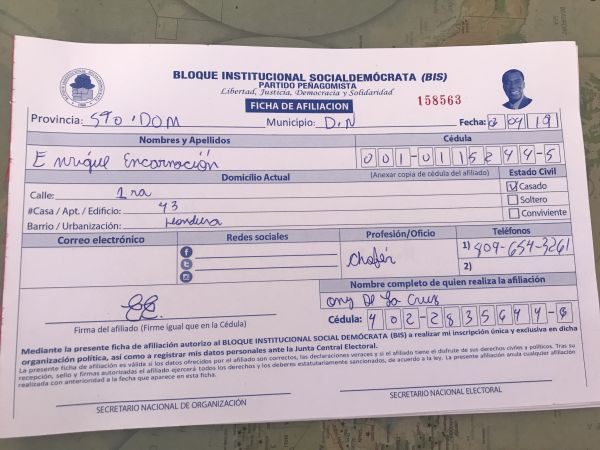 BLOQUE INSTITUCIONAL SOCIALDEMÓCRATA (BIS)
PARTIDO PEÑAGOMISTA
Libertad, Justicia, Democracia y Solidaridad
FICHA DE AFILIACION
158563
Provincia: STO. DOM Municipio: D.N Fecha: 3 09 19
Nombres y Apellidos Cédula
Enrique Encarnación 001-0115844-5
Domicilio Actual (Anexar copia de cédula del afiliado) Estado Civil
Calle: 1ra Casado
#Casa / Apt. / Edificio: 43 Soltero
Barrio / Urbanización: Hondura Conviviente
Correo electrónico Redes sociales Profesión/Oficio Teléfonos
Chofér 1) 809-654-3261
2)
Nombre completo de quien realiza la afiliación
Ony De La Cruz
Cédula: 402-2835644-8
Firma del afiliado (Firme igual que en la Cédula)
Mediante la presente ficha de afiliación autorizo al BLOQUE INSTITUCIONAL SOCIAL DEMÓCRATA (BIS) a realizar mi inscripción única y exclusiva en dicha
organización política, así como a registrar mis datos personales ante la Junta Central Electoral.
La presente ficha de afiliación es válida si los datos ofrecidos por el afiliado son correctos, las declaraciones veraces y si el afiliado tiene el disfrute de sus derechos civiles y políticos. Tras su
recepción, sello y firmas autorizadas el afiliado ejercerá todos los derechos y los deberes estatutariamente sancionados, de acuerdo a la ley. La presente afiliación anula cualquier afiliación
realizada con anterioridad a la fecha que aparece en esta ficha.
SECRETARIO NACIONAL DE ORGANIZACIÓN SECRETARIO NACIONAL ELECTORAL